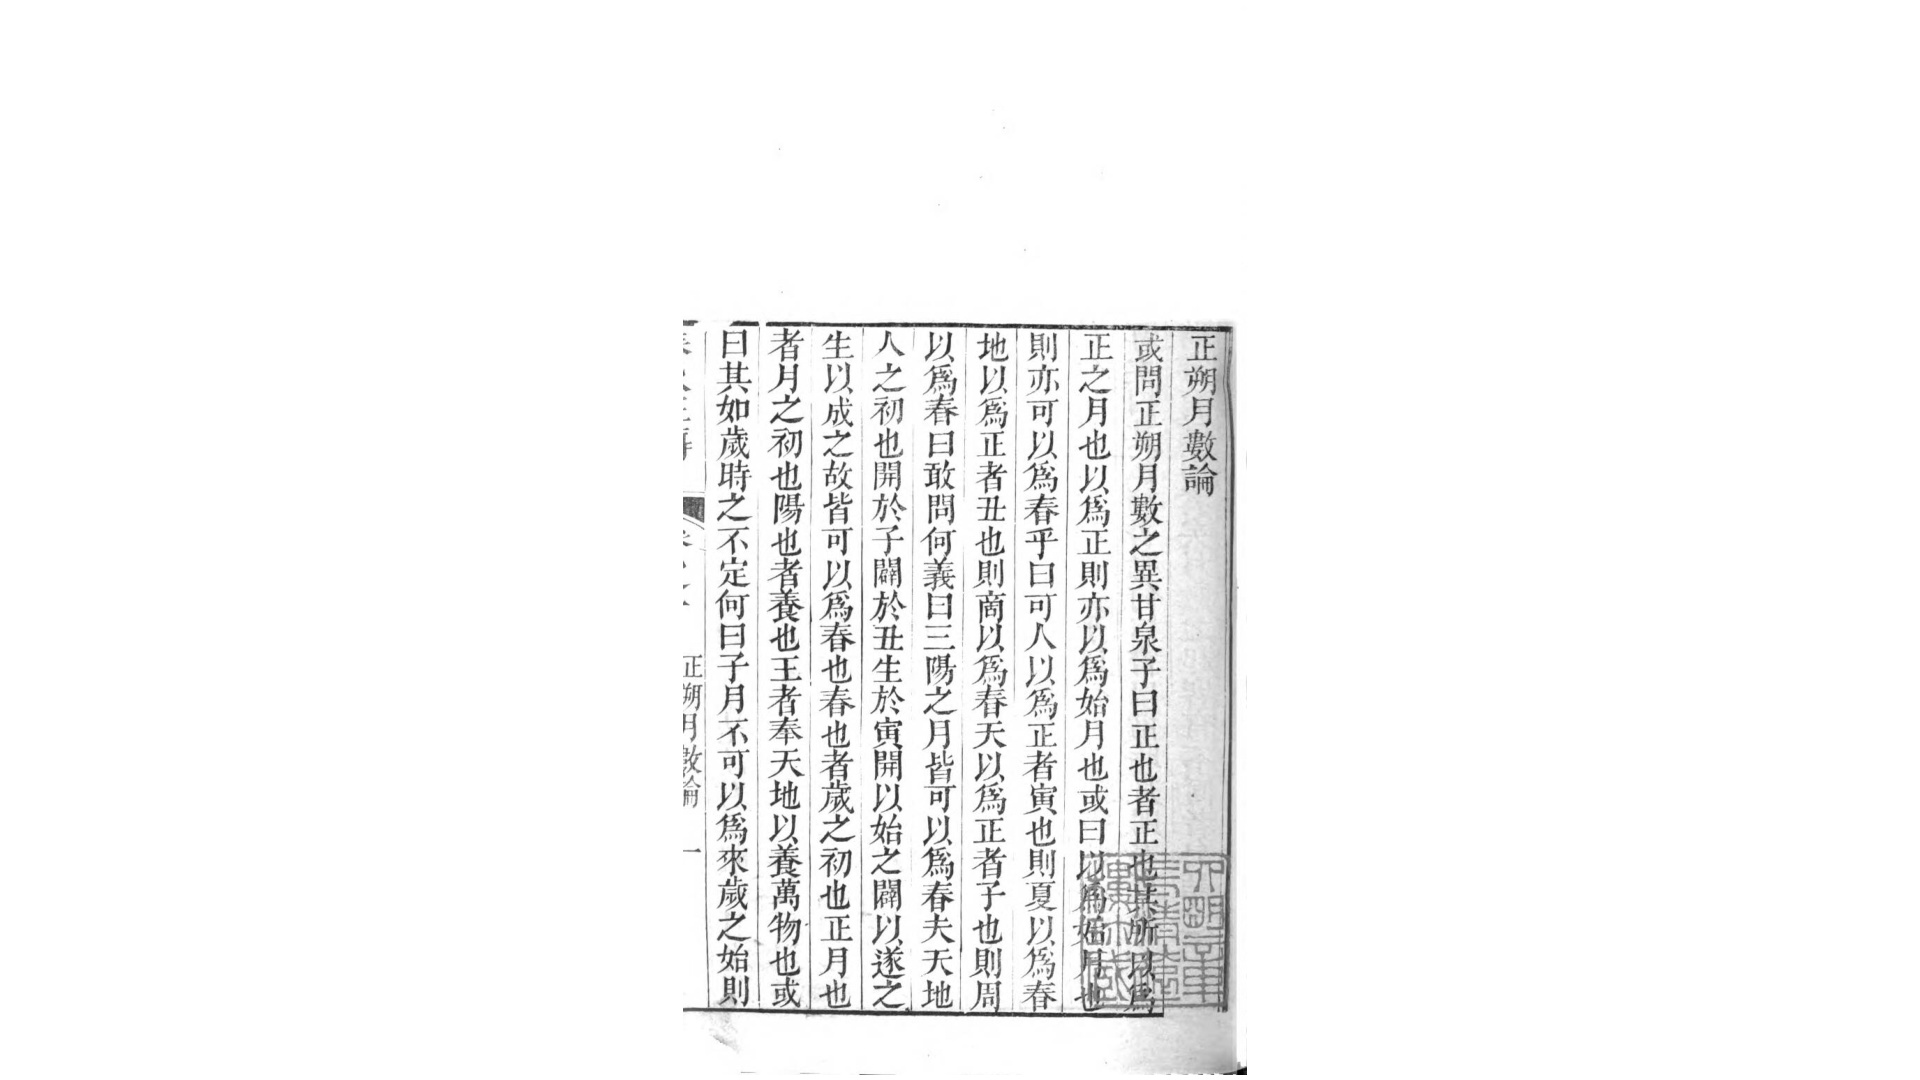 正朔月數論
或問正朔月數之異甘泉子曰正也者正也其所以爲
正之月也以爲正則亦以爲始月也或曰以爲始月也
則亦可以爲春乎曰可人以爲正者寅也則夏以爲春
地以爲正者丑也則商以爲春天以爲正者子也則周
以爲春曰敢問何義曰三陽之月皆可以爲春夫天地
人之初也開於子闢於丑生於寅開以始之闢以遂之
生以成之故皆可以爲春也春也者歲之初也正月也
者月之初也陽也者養也王者奉天地以養萬物也或
曰其如歲時之不定何曰子月不可以爲來歲之始則
正朔月數論 一